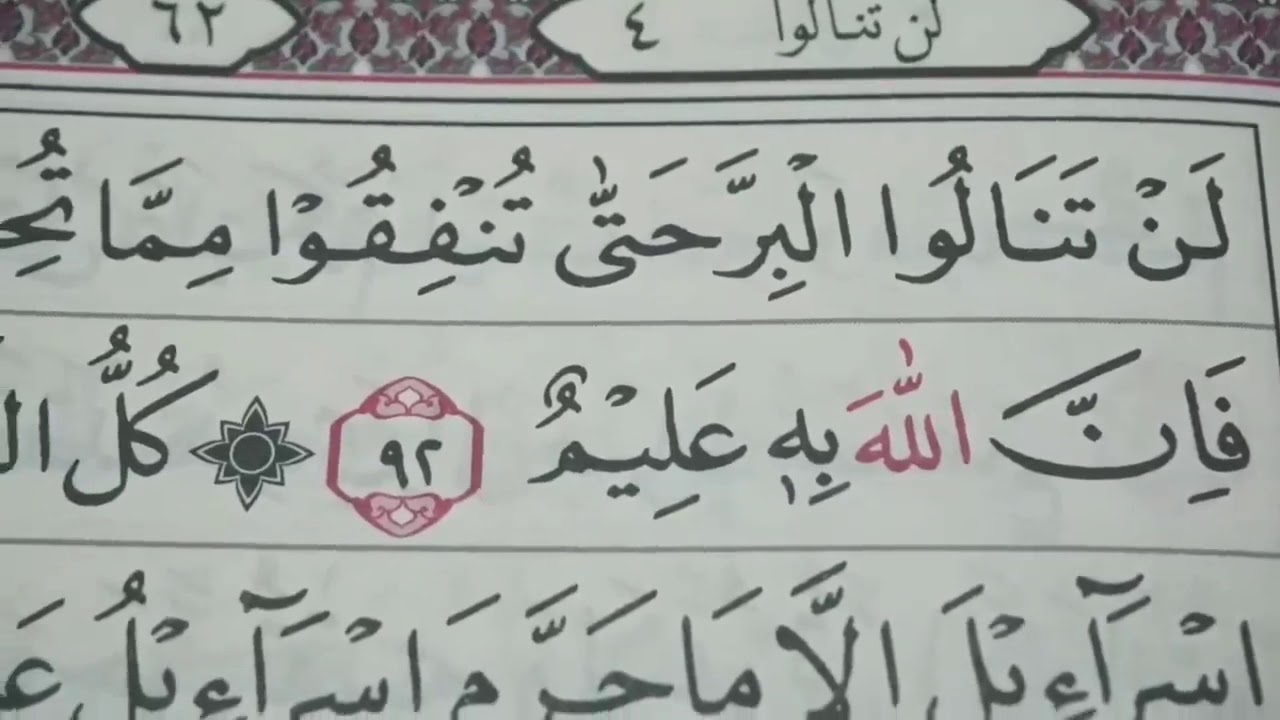 لن تنالوا ٤ ٦٢
لَنْ تَنَالُوا الْبِرَّ حَتّٰى تُنْفِقُوْا مِمَّا
فَاِنَّ اللّٰهَ بِهٖ عَلِيْمٌ ٩٢ كُلُّ
اِسْرَآءِيْلَ اِلَّا مَا حَرَّمَ اِسْرَآءِيْلُ